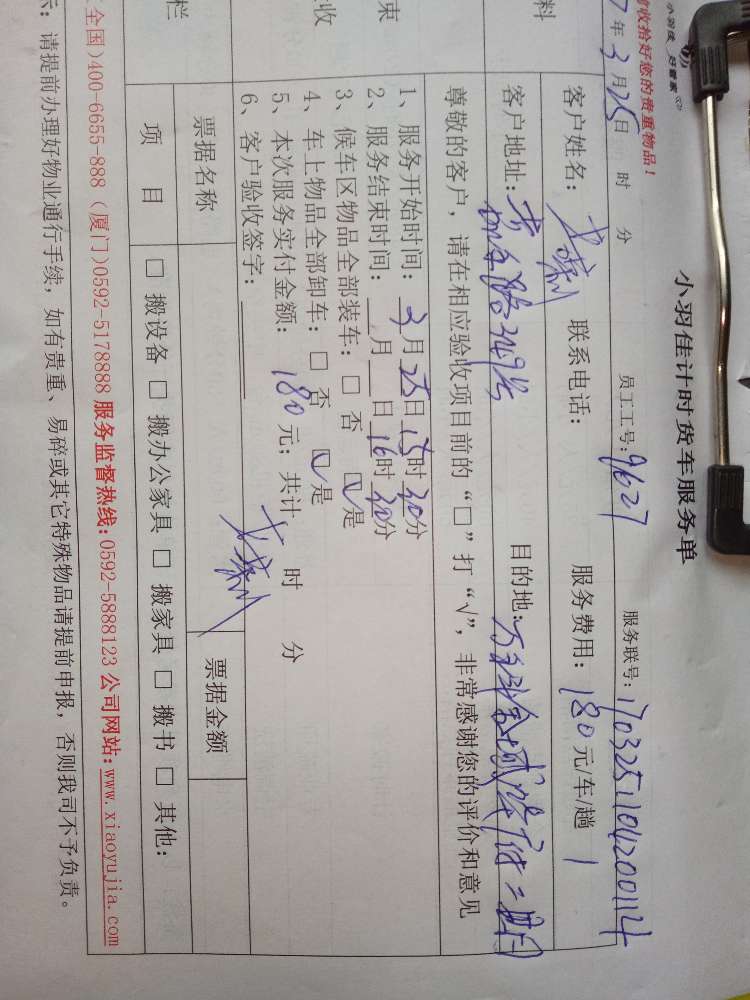 小羽佳 好管家
收拾好您的贵重物品！
小羽佳计时货车服务单
7年3月25日 时 分 员工工号：9627 服务联号：170325110420011124
客户姓名： 联系电话： 服务费用：180元/车/趟 1
客户地址： 目的地：
尊敬的客户，请在相应验收项目前的“□”打“√”，非常感谢您的评价和意见
1、服务开始时间：3月25日15时30分
2、服务结束时间： 月 日16时30分
3、候车区物品全部装车：□ 否 ☑是
4、车上物品全部卸车：□ 否 ☑是
5、本次服务实付金额：180元；共计 时 分
6、客户验收签字：
票据名称 票据金额
项 目 □ 搬设备 □ 搬办公家具 □ 搬家具 □ 搬书 □ 其他：
全国)400-6655-888（厦门)0592-5178888 服务监督热线:0592-5888123 公司网站:www.xiaoyujia.com
示：请提前办理好物业通行手续，如有贵重、易碎或其它特殊物品请提前申报，否则我司不予负责。
料
束
收
栏